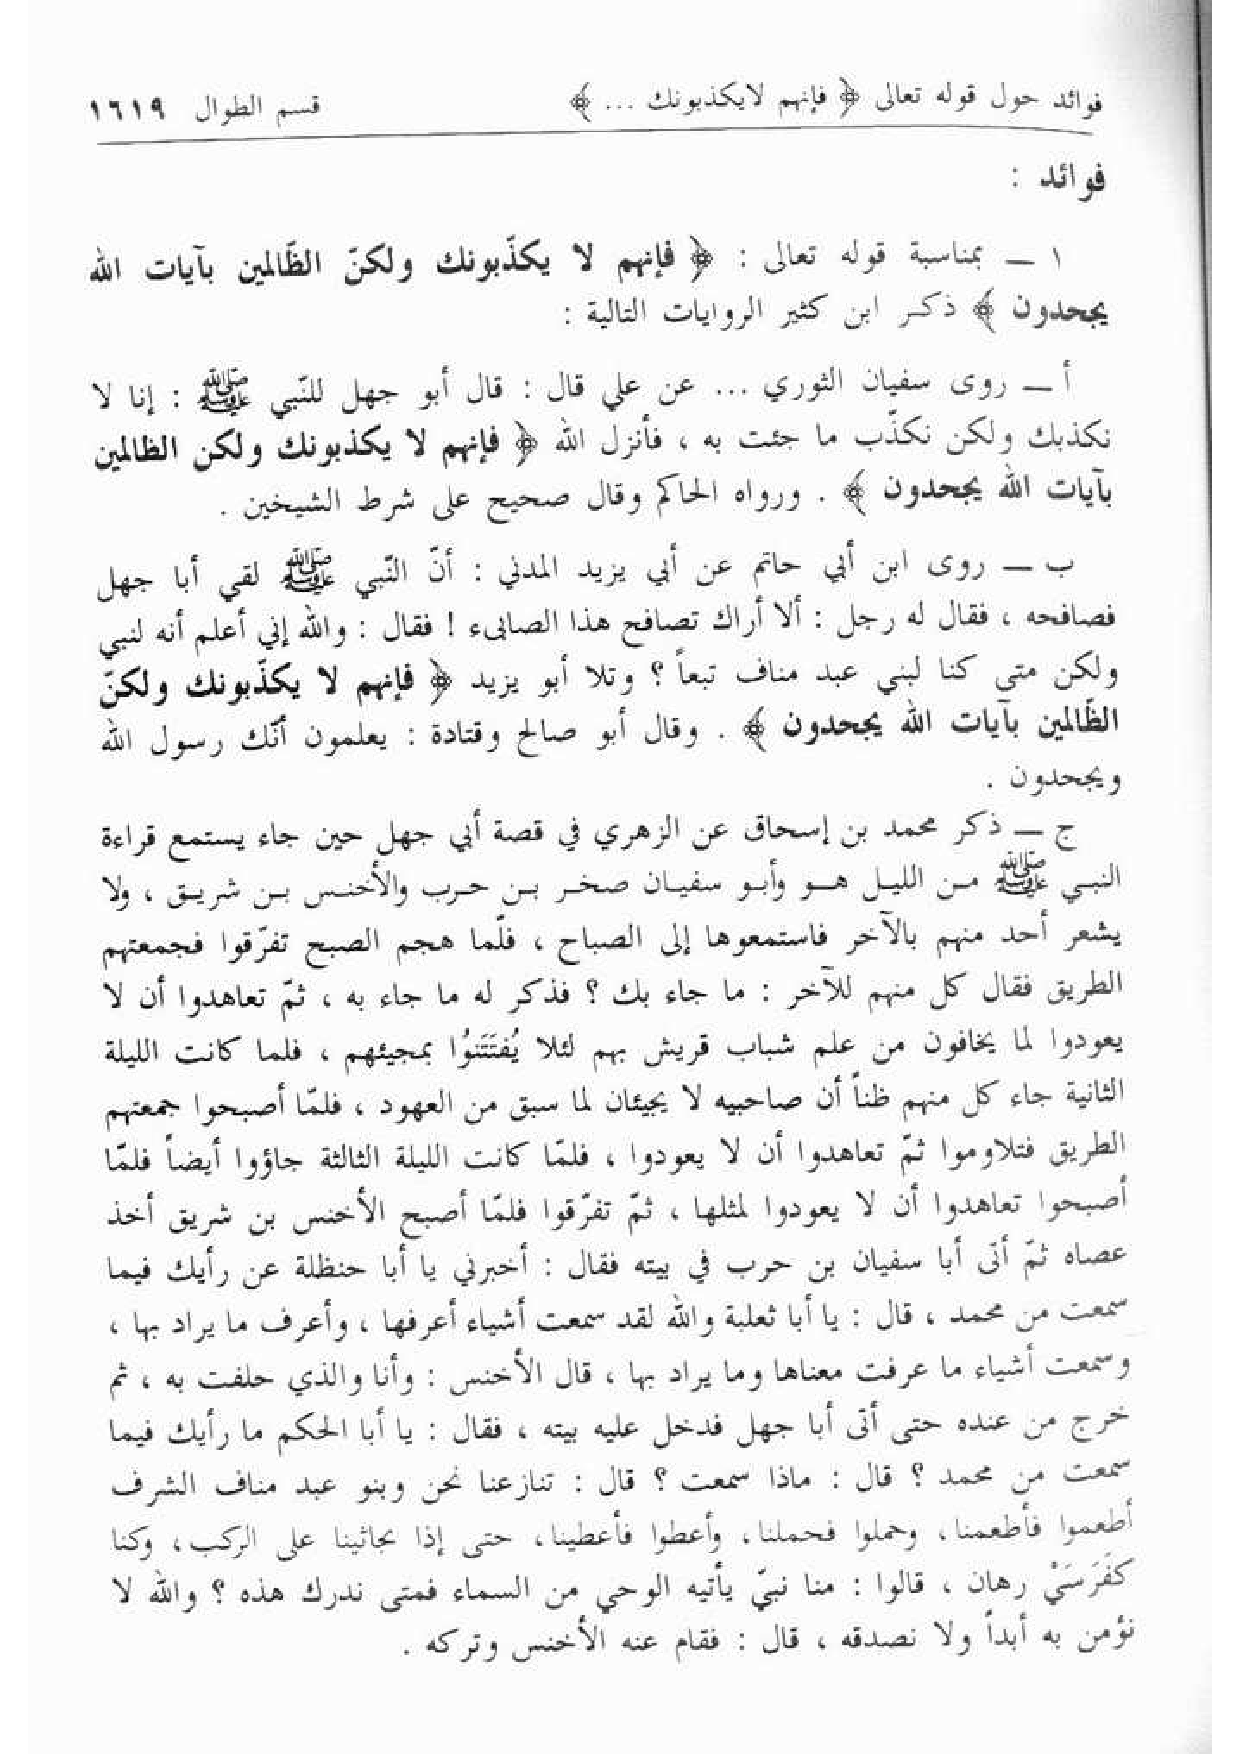 فوائد حول قوله تعالى ﴿ فإنهم لايكذبونك ... ﴾ قسم الطوال ١٦١٩
فوائد :
١ ــ بمناسبة قوله تعالى : ﴿ فإنهم لا يكذّبونك ولكنّ الظّالمين بآيات الله
يجحدون ﴾ ذكر ابن كثير الروايات التالية :
أ ــ روى سفيان الثوري ... عن علي قال : قال أبو جهل للنّبي ﷺ : إنا لا
نكذبك ولكن نكذّب ما جئت به ، فأنزل الله ﴿ فإنهم لا يكذبونك ولكن الظالمين
بآيات الله يجحدون ﴾ . ورواه الحاكم وقال صحيح على شرط الشيخين .
ب ــ روى ابن أبي حاتم عن أبي يزيد المدني : أنّ النّبي ﷺ لقي أبا جهل
فصافحه ، فقال له رجل : ألا أراك تصافح هذا الصابىء ! فقال : والله إني أعلم أنه لنبي
ولكن متى كنا لبني عبد مناف تبعاً ؟ وتلا أبو يزيد ﴿ فإنهم لا يكذّبونك ولكنّ
الظّالمين بآيات الله يجحدون ﴾ . وقال أبو صالح وقتادة : يعلمون أنّك رسول الله
ويجحدون .
ج ــ ذكر محمد بن إسحاق عن الزهري في قصة أبي جهل حين جاء يستمع قراءة
النبي ﷺ من الليل هو وأبو سفيان صخر بن حرب والأخنس بن شريق ، ولا
يشعر أحد منهم بالآخر فاستمعوها إلى الصباح ، فلّما هجم الصبح تفرّقوا فجمعتهم
الطريق فقال كل منهم للآخر : ما جاء بك ؟ فذكر له ما جاء به ، ثمّ تعاهدوا أن لا
يعودوا لما يخافون من علم شباب قريش بهم لئلا يُفتَتَنوُا بمجيئهم ، فلما كانت الليلة
الثانية جاء كل منهم ظناً أن صاحبيه لا يجيئان لما سبق من العهود ، فلمّا أصبحوا جمعتهم
الطريق فتلاوموا ثمّ تعاهدوا أن لا يعودوا ، فلمّا كانت الليلة الثالثة جاؤوا أيضاً فلمّا
أصبحوا تعاهدوا أن لا يعودوا لمثلها ، ثمّ تفرّقوا فلمّا أصبح الأخنس بن شريق أخذ
عصاه ثمّ أتى أبا سفيان بن حرب في بيته فقال : أخبرني يا أبا حنظلة عن رأيك فيما
سمعت من محمد ، قال : يا أبا ثعلبة والله لقد سمعت أشياء أعرفها ، وأعرف ما يراد بها ،
وسمعت أشياء ما عرفت معناها وما يراد بها ، قال الأخنس : وأنا والذي حلفت به ، ثم
خرج من عنده حتى أتى أبا جهل فدخل عليه بيته ، فقال : يا أبا الحكم ما رأيك فيما
سمعت من محمد ؟ قال : ماذا سمعت ؟ قال : تنازعنا نحن وبنو عبد مناف الشرف
أطعموا فأطعمنا، وحملوا فحملنا، وأعطوا فأعطينا، حتى إذا تجاثينا على الركب، وكنا
كفَرَسَيْ رهان ، قالوا : منا نبيّ يأتيه الوحي من السماء فمتى ندرك هذه ؟ والله لا
نؤمن به أبداً ولا نصدقه ، قال : فقام عنه الأخنس وتركه .